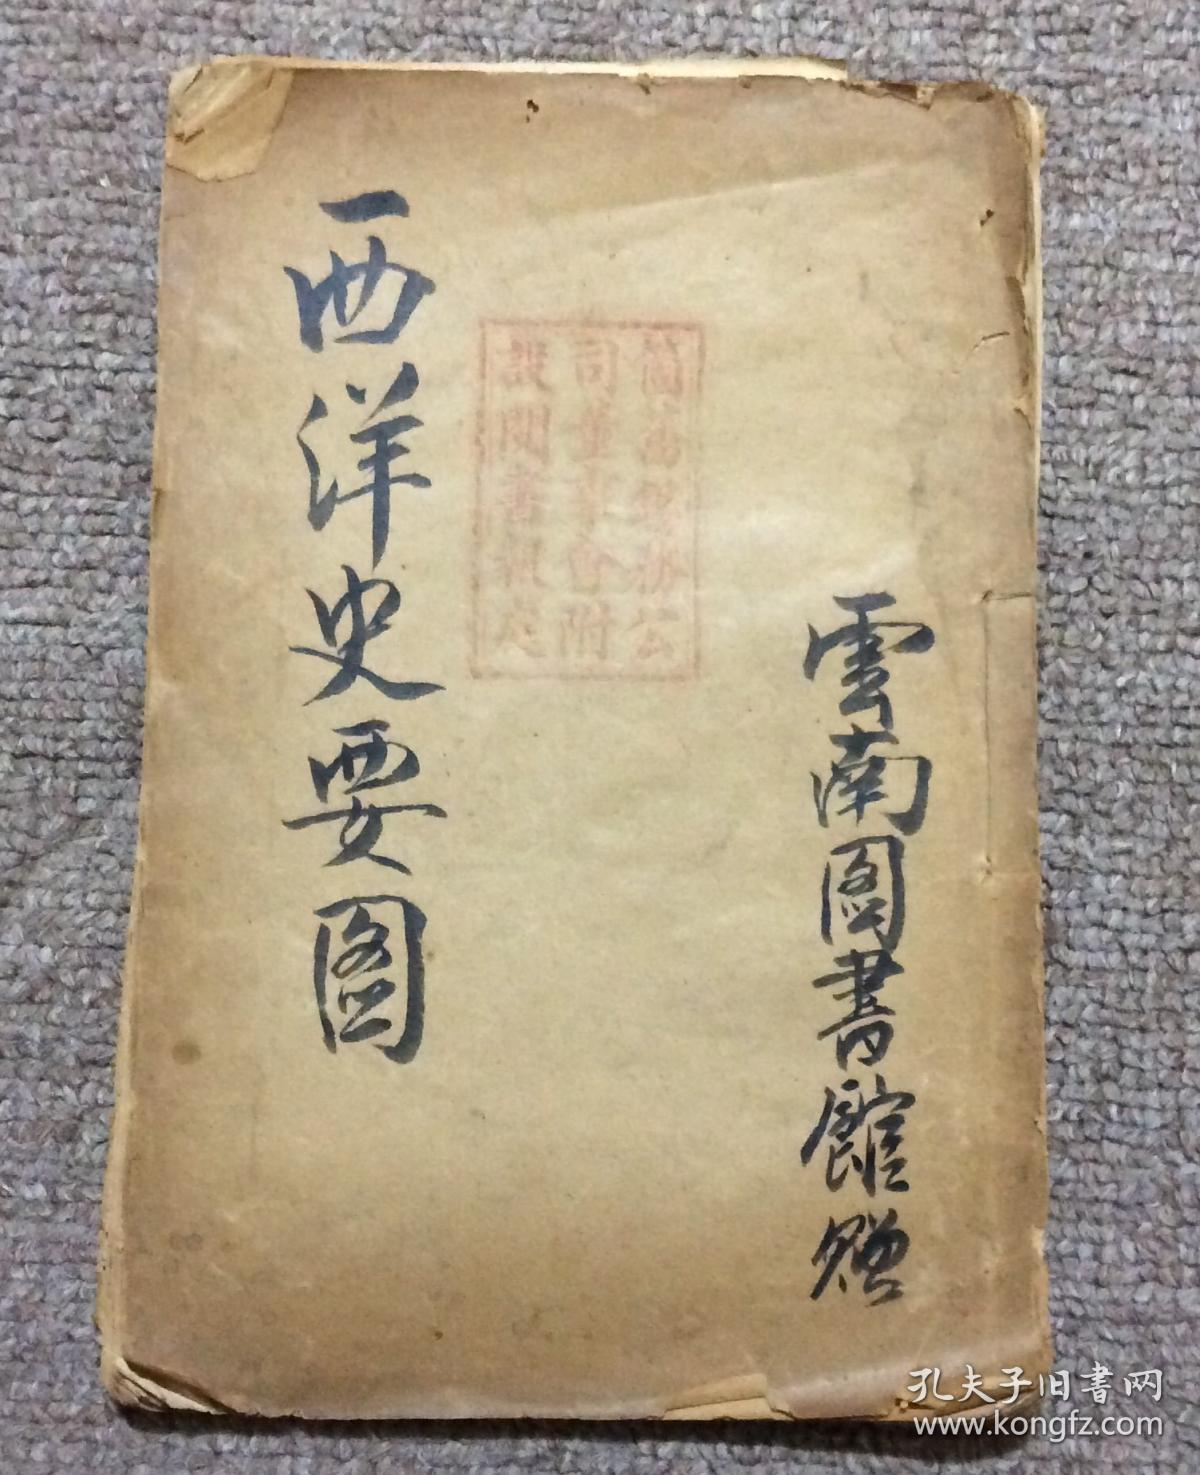 雲南圖書館贈
司董事會附
設閱書報處
西洋史要圖
孔夫子旧書网
www.kongfz.com